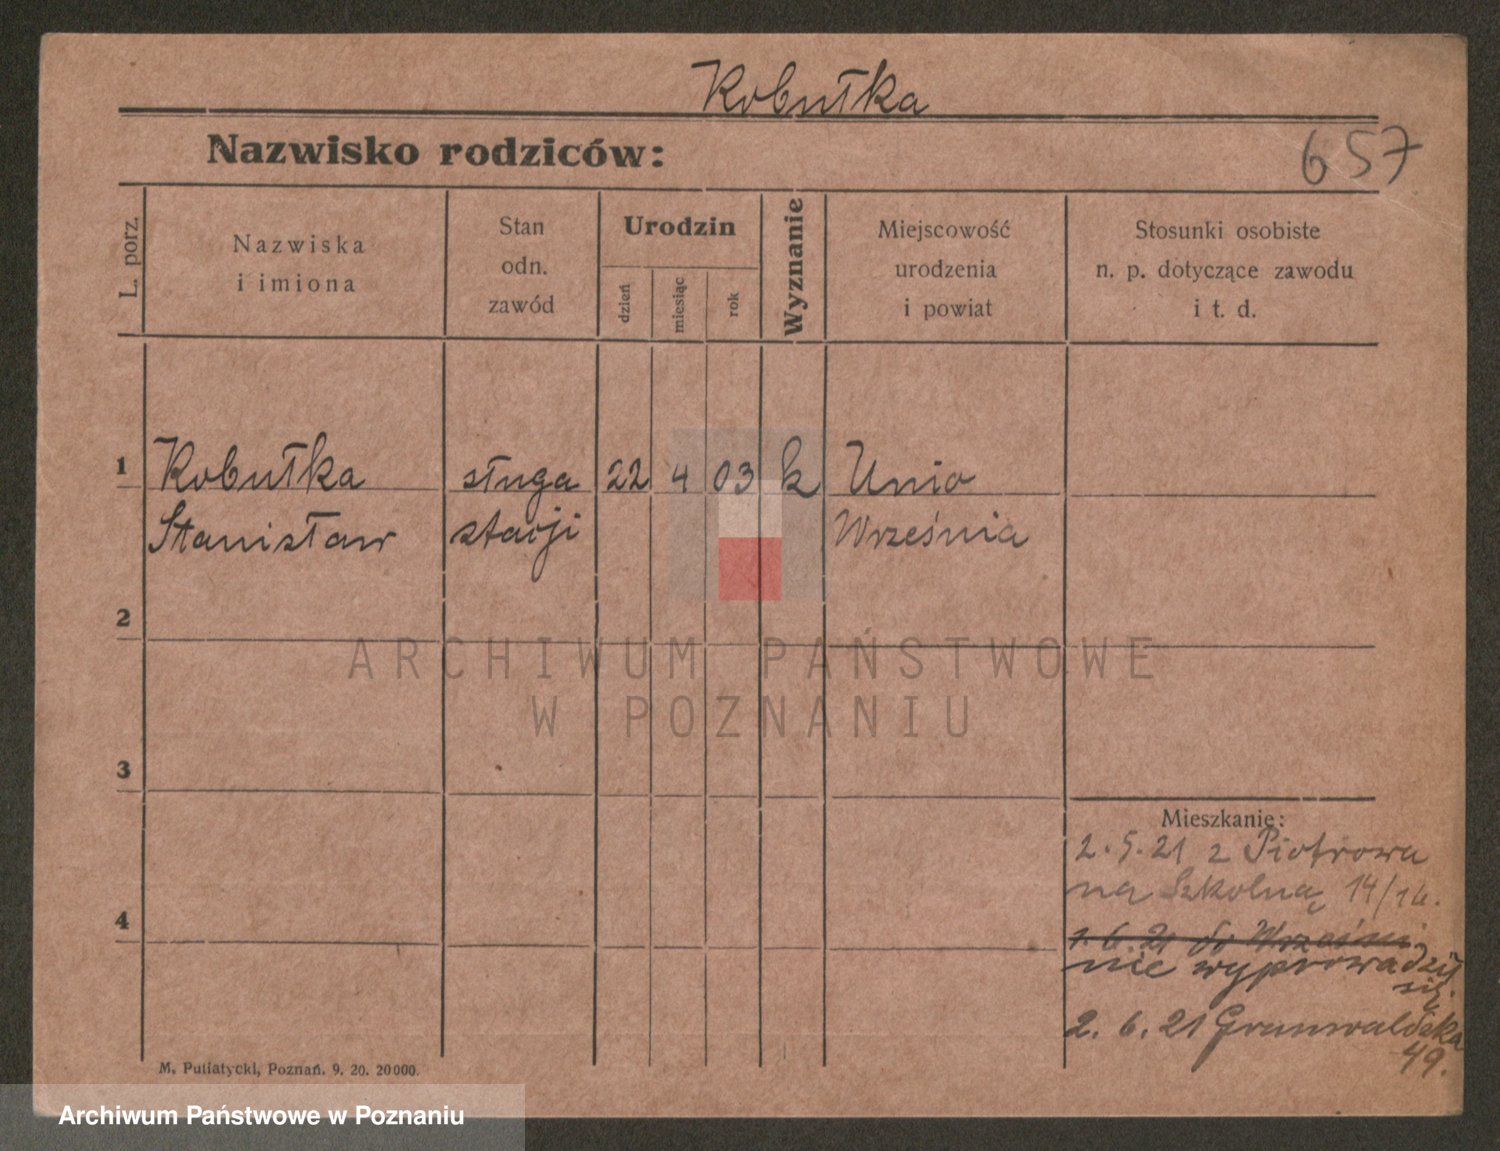 Kobułka
657
Nazwisko rodziców:
L. porz.
Nazwiska
i imiona
Stan
odn.
zawód
Urodzin
dzień
miesiąc
rok
Wyznanie
Miejscowość
urodzenia
i powiat
Stosunki osobiste
n. p. dotyczące zawodu
i t. d.
1 Kobułka sługa 22 4 03 k Unio
Stanisław stacji Września
2
3
4
Mieszkanie:
2.5.21 z Piotrowa
na Szkolną 14/
1.6.21 do Wrześni
nie wyprowadził
się.
2.6.21 Grunwaldzka
49.
M. Putiatycki, Poznań. 9. 20. 20000.
ARCHIWUM PAŃSTWOWE
W POZNANIU
Archiwum Państwowe w Poznaniu